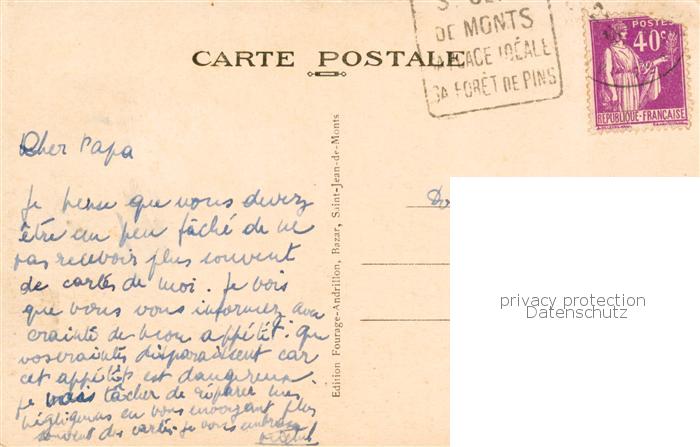 CARTE POSTALE
DE MONTS
PLAGE IDÉALE
SA FORÊT DE PINS
POSTES
40c
RÉPUBLIQUE-FRANÇAISE
Cher Papa
Je pense que vous devez
être un peu fâché de ne
pas recevoir plus souvent
de cartes de moi. Je vois
que vous vous informez avec
crainte de mon appétit. Que
vos craintes disparaissent car
cet appétit est dangereux.
Je vais tâcher de réparer mes
négligences en vous envoyant plus
souvent des cartes. Je vous embrasse
Edition Fourage-Andrillon, Bazar, Saint-Jean-de-Monts
privacy protection
Datenschutz